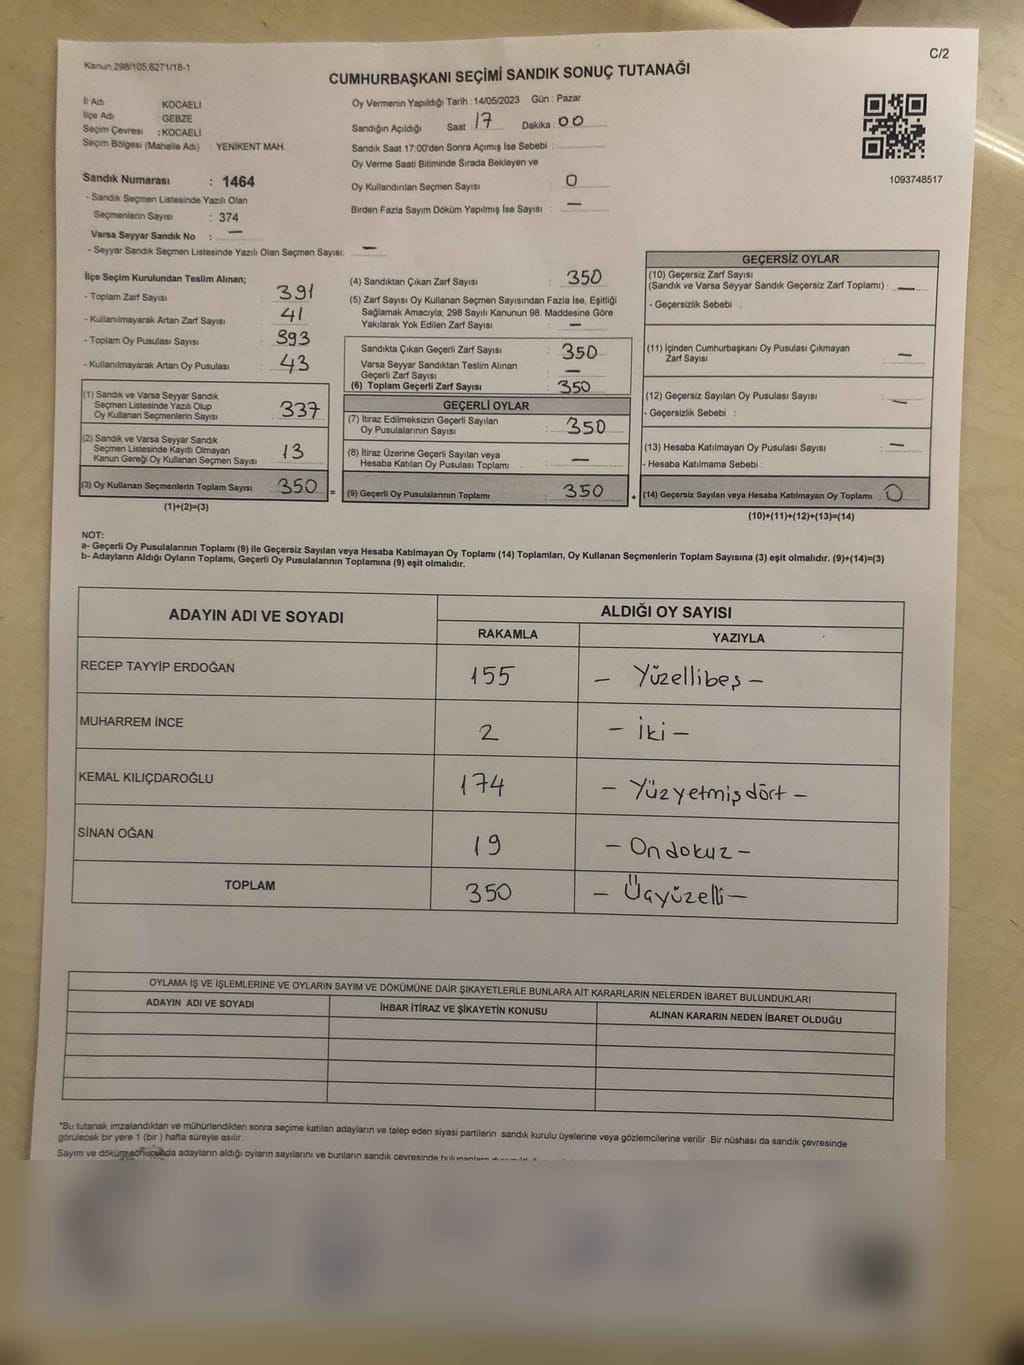 Kanun:298/105,6271/18-1
C/2
CUMHURBAŞKANI SEÇİMİ SANDIK SONUÇ TUTANAĞI
İl Adı KOCAELİ
İlçe Adı GEBZE
Seçim Çevresi : KOCAELİ
Seçim Bölgesi (Mahalle Adı) : YENİKENT MAH.
Sandık Numarası : 1464
- Sandık Seçmen Listesinde Yazılı Olan
Seçmenlerin Sayısı : 374
Varsa Seyyar Sandık No : —
- Seyyar Sandık Seçmen Listesinde Yazılı Olan Seçmen Sayısı: —
Oy Vermenin Yapıldığı Tarih : 14/05/2023 Gün : Pazar
Sandığın Açıldığı Saat : 17 Dakika : 00
Sandık Saat 17:00'den Sonra Açımış İse Sebebi :
Oy Verme Saati Bitiminde Sırada Bekleyen ve
Oy Kullandırılan Seçmen Sayısı : 0
Birden Fazla Sayım Döküm Yapılmış İse Sayısı : —
1093748517
İlçe Seçim Kurulundan Teslim Alınan;
- Toplam Zarf Sayısı : 391
- Kullanılmayarak Artan Zarf Sayısı : 41
- Toplam Oy Pusulası Sayısı : 393
- Kullanılmayarak Artan Oy Pusulası : 43
(1) Sandık ve Varsa Seyyar Sandık
Seçmen Listesinde Yazılı Olup
Oy Kullanan Seçmenlerin Sayısı : 337
(2) Sandık ve Varsa Seyyar Sandık
Seçmen Listesinde Kayıtlı Olmayan
Kanun Gereği Oy Kullanan Seçmen Sayısı : 13
(3) Oy Kullanan Seçmenlerin Toplam Sayısı : 350
(1)+(2)=(3)
(4) Sandıktan Çıkan Zarf Sayısı : 350
(5) Zarf Sayısı Oy Kullanan Seçmen Sayısından Fazla İse, Eşitliği
Sağlamak Amacıyla; 298 Sayılı Kanunun 98. Maddesine Göre
Yakılarak Yok Edilen Zarf Sayısı : —
Sandıkta Çıkan Geçerli Zarf Sayısı : 350
Varsa Seyyar Sandıktan Teslim Alınan
Geçerli Zarf Sayısı : —
(6) Toplam Geçerli Zarf Sayısı : 350
GEÇERLİ OYLAR
(7) İtiraz Edilmeksizin Geçerli Sayılan
Oy Pusulalarının Sayısı : 350
(8) İtiraz Üzerine Geçerli Sayılan veya
Hesaba Katılan Oy Pusulası Toplamı : —
= (9) Geçerli Oy Pusulalarının Toplamı : 350
GEÇERSİZ OYLAR
(10) Geçersiz Zarf Sayısı
(Sandık ve Varsa Seyyar Sandık Geçersiz Zarf Toplamı) : —
- Geçersizlik Sebebi :
(11) İçinden Cumhurbaşkanı Oy Pusulası Çıkmayan
Zarf Sayısı : —
(12) Geçersiz Sayılan Oy Pusulası Sayısı : —
- Geçersizlik Sebebi :
(13) Hesaba Katılmayan Oy Pusulası Sayısı : —
- Hesaba Katılmama Sebebi :
+ (14) Geçersiz Sayılan veya Hesaba Katılmayan Oy Toplamı : 0
(10)+(11)+(12)+(13)=(14)
NOT:
a- Geçerli Oy Pusulalarının Toplamı (9) ile Geçersiz Sayılan veya Hesaba Katılmayan Oy Toplamı (14) Toplamları, Oy Kullanan Seçmenlerin Toplam Sayısına (3) eşit olmalıdır. (9)+(14)=(3)
b- Adayların Aldığı Oyların Toplamı, Geçerli Oy Pusulalarının Toplamına (9) eşit olmalıdır.
ADAYIN ADI VE SOYADI ALDIĞI OY SAYISI
RAKAMLA YAZIYLA
RECEP TAYYİP ERDOĞAN 155 — Yüzellibeş —
MUHARREM İNCE 2 — İki —
KEMAL KILIÇDAROĞLU 174 — Yüzyetmişdört —
SİNAN OĞAN 19 — Ondokuz —
TOPLAM 350 — Üçyüzelli —
OYLAMA İŞ VE İŞLEMLERİNE VE OYLARIN SAYIM VE DÖKÜMÜNE DAİR ŞİKAYETLERLE BUNLARA AİT KARARLARIN NELERDEN İBARET BULUNDUKLARI
ADAYIN ADI VE SOYADI İHBAR İTİRAZ VE ŞİKAYETİN KONUSU ALINAN KARARIN NEDEN İBARET OLDUĞU
*Bu tutanak imzalandıktan ve mühürlendikten sonra seçime katılan adayların ve talep eden siyasi partilerin sandık kurulu üyelerine veya gözlemcilerine verilir .Bir nüshası da sandık çevresinde
görülecek bir yere 1 (bir ) hafta süreyle asılır.
Sayım ve döküm sonucunda adayların aldığı oyların sayılarını ve bunların sandık çevresinde